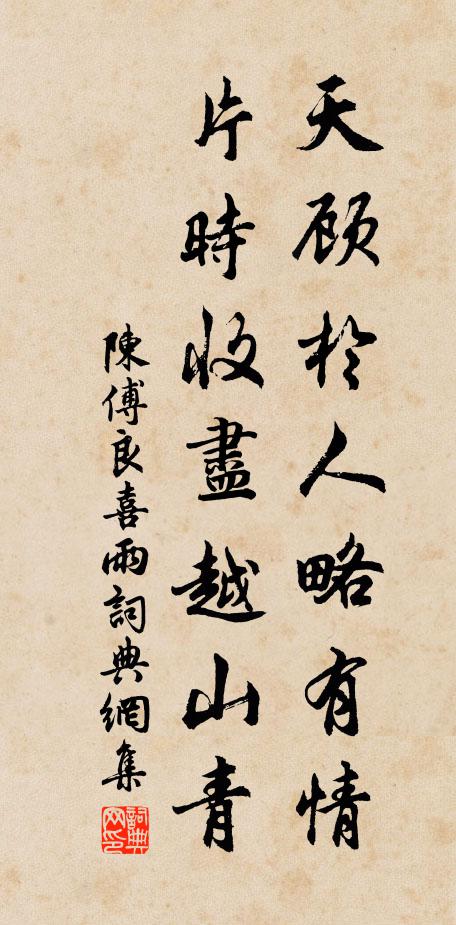 天顾於人略有情
片時收盡越山青
陳傅良喜雨詞典網集
詞典網印